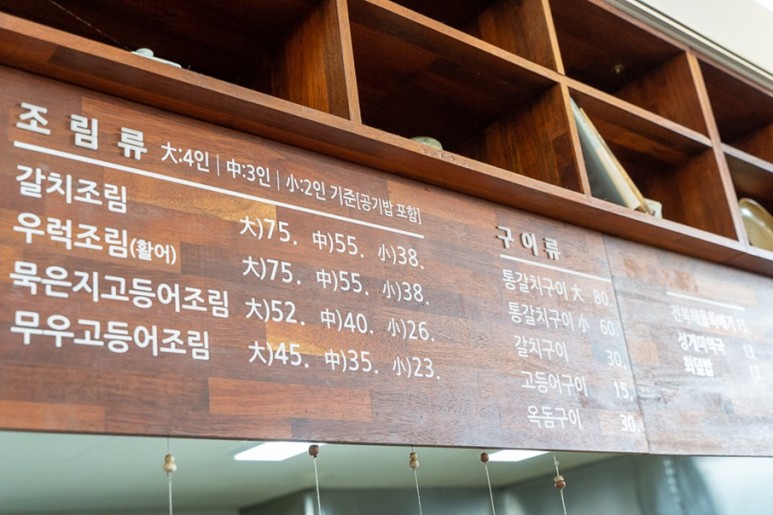 조림류 大:4인 | 中:3인 | 小:2인 기준[공기밥 포함]
갈치조림 大)75. 中)55. 小)38.
우럭조림(활어) 大)75. 中)55. 小)38.
묵은지고등어조림 大)52. 中)40. 小)26.
무우고등어조림 大)45. 中)35. 小)23.
구이류
통갈치구이 大 80.
통갈치구이 小 60.
갈치구이 30.
고등어구이 15.
옥돔구이 30.
전복해물뚝배기 15.
성게미역국 13.
회덮밥